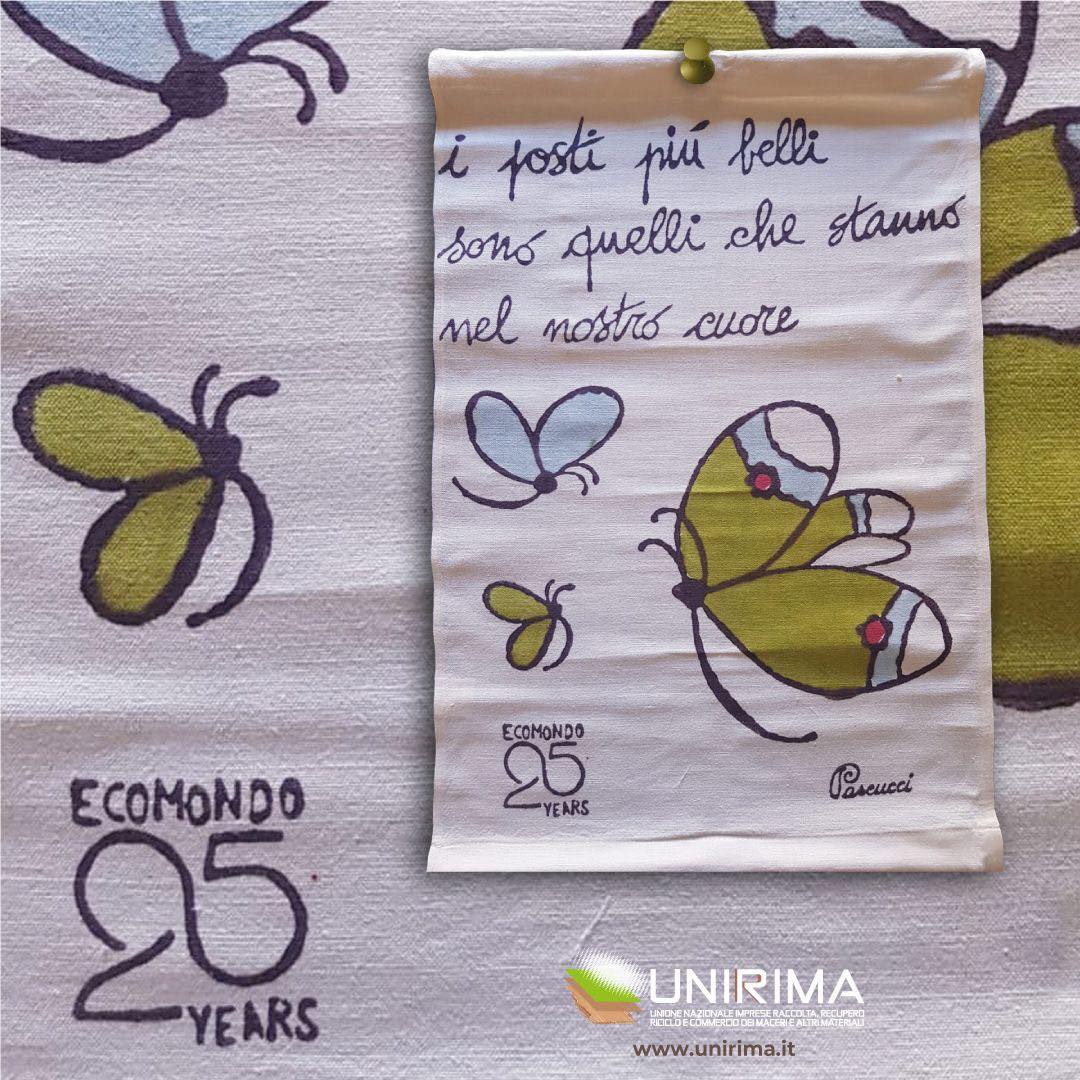 i posti piú belli
sono quelli che stanno
nel nostro cuore
ECOMONDO
25
YEARS
Pascucci
ECOMONDO
25
YEARS
UNIRIMA
UNIONE NAZIONALE IMPRESE RACCOLTA, RECUPERO
RICICLO E COMMERCIO DEI MACERI E ALTRI MATERIALI
www.unirima.it